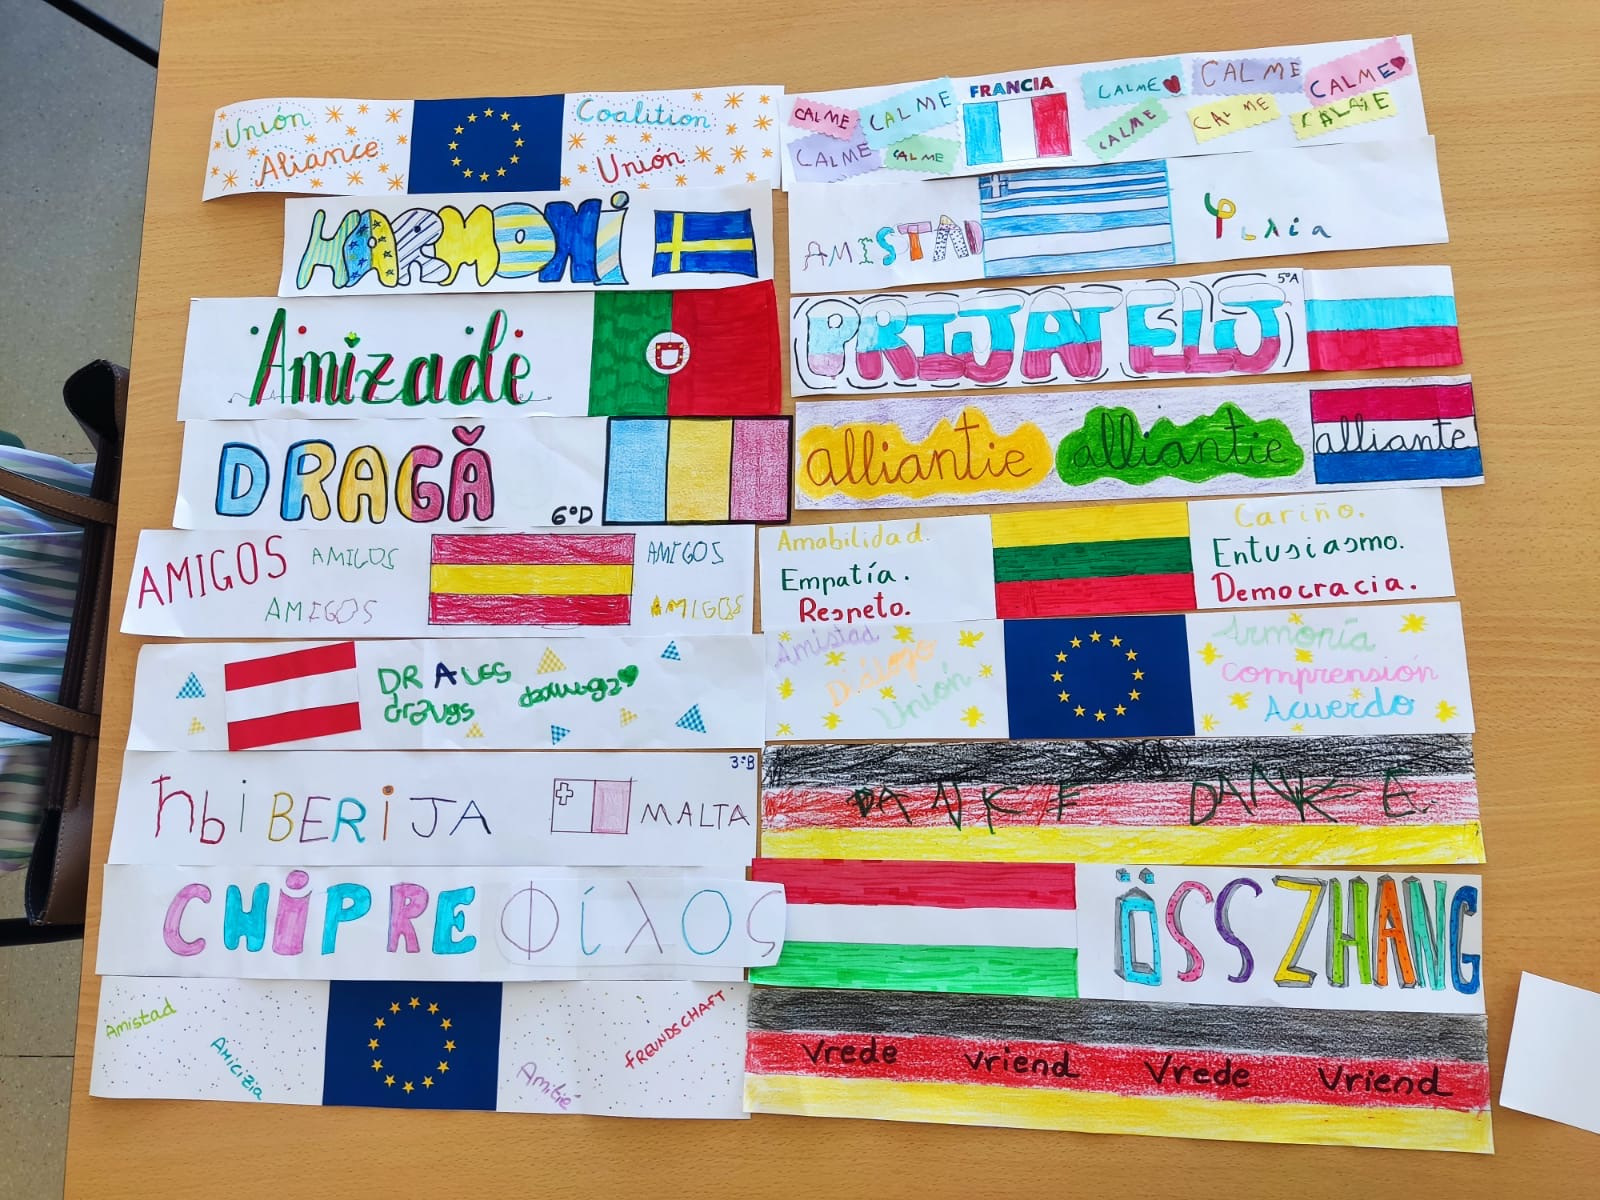 Unión
Aliance
Coalition
Unión
HARMONi
Amizade
DRAGĂ
6ºD
AMIGOS AMIGOS AMIGOS
AMIGOS AMIGOS
DRAUGS
draugs
ħbiBERiJA
MALTA
3ºB
CHiPRE Φίλος
Amistad
Amicizia
Amitié
FREUNDSCHAFT
FRANCIA
CALME CALME CALME CALME CALME
CALME CALME CALME CALME CALME
AMISTAD
φιλία
5ºA
PRIJATELJ
alliantie alliantie alliante
Amabilidad.
Empatía.
Respeto.
Cariño.
Entusiasmo.
Democracia.
Amistad
Diálogo
Unión
Armonía
Comprensión
Acuerdo
DANKE DANKE
ÖSSZHANG
Vrede vriend Vrede Vriend